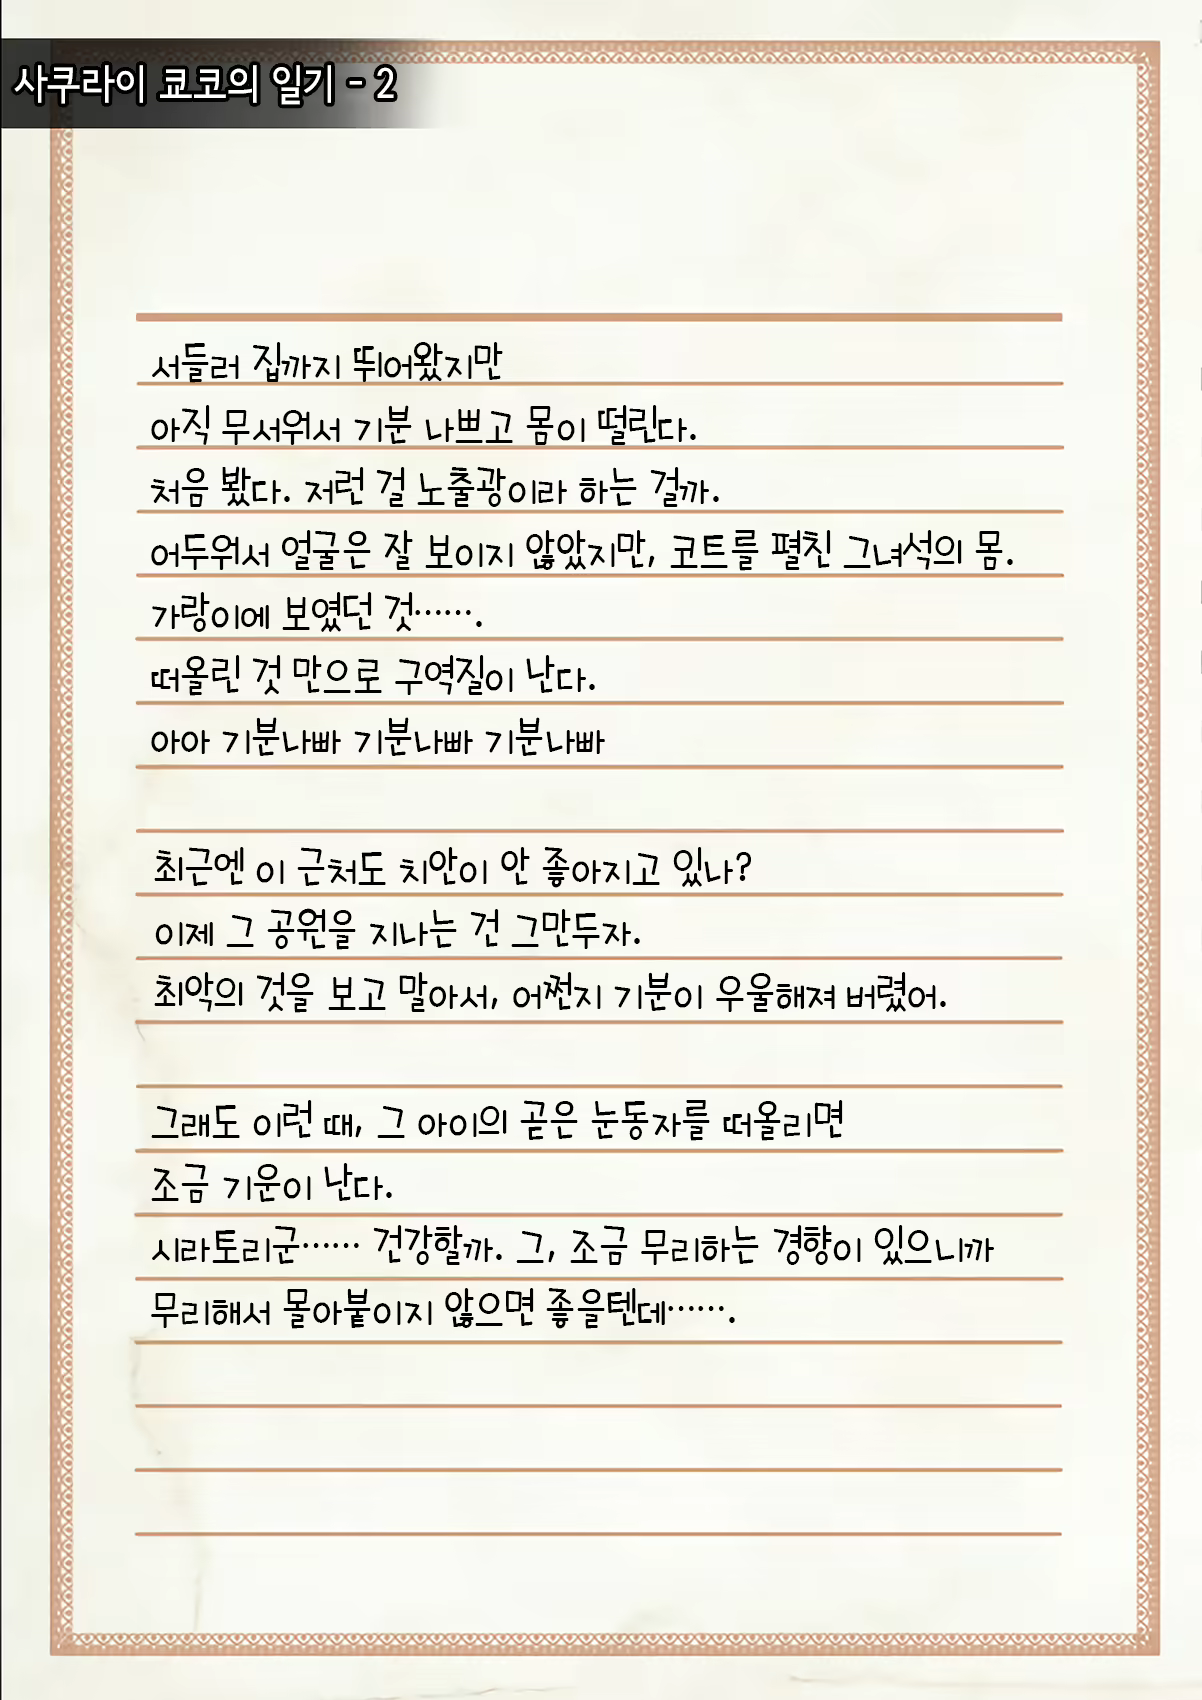 사쿠라이 쿄코의 일기 - 2
서둘러 집까지 뛰어왔지만
아직 무서워서 기분 나쁘고 몸이 떨린다.
처음 봤다. 저런 걸 노출광이라 하는 걸까.
어두워서 얼굴은 잘 보이지 않았지만, 코트를 펼친 그녀석의 몸.
가랑이에 보였던 것…….
떠올린 것 만으로 구역질이 난다.
아아 기분나빠 기분나빠 기분나빠
최근엔 이 근처도 치안이 안 좋아지고 있나?
이제 그 공원을 지나는 건 그만두자.
최악의 것을 보고 말아서, 어쩐지 기분이 우울해져 버렸어.
그래도 이런 때, 그 아이의 곧은 눈동자를 떠올리면
조금 기운이 난다.
시라토리군…… 건강할까. 그, 조금 무리하는 경향이 있으니까
무리해서 몰아붙이지 않으면 좋을텐데…….